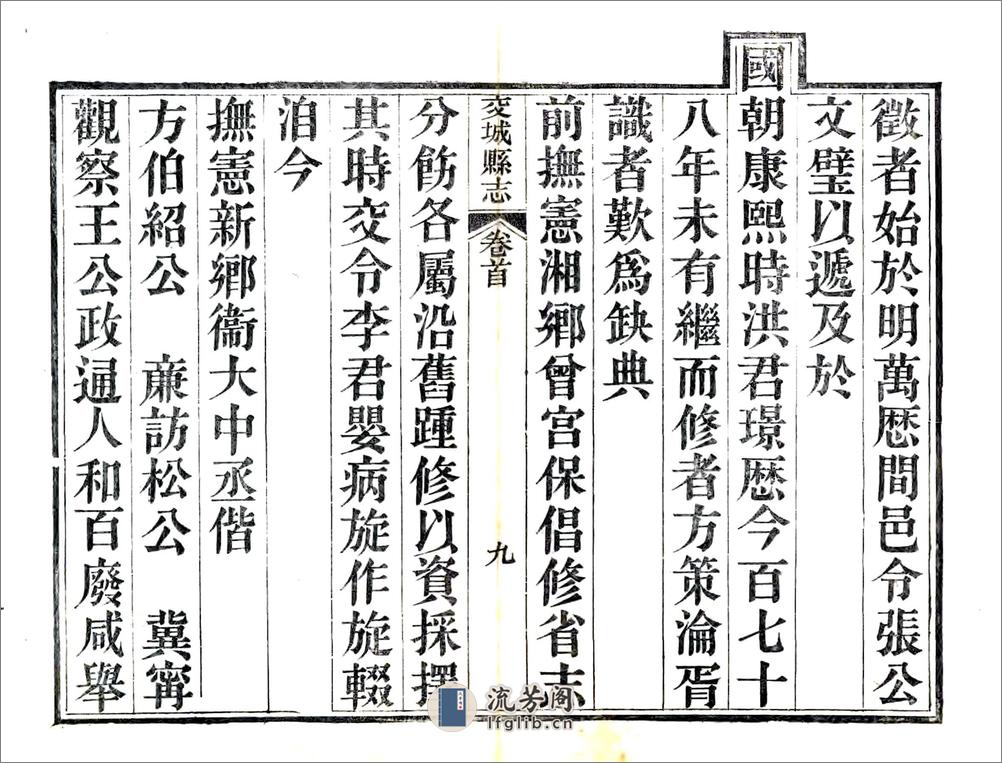 徵者始於明萬厯間邑令張公
文璧以遞及於
國朝康熙時洪君璟厯今百七十
八年未有繼而修者方策淪胥
識者歎爲缺典
前撫憲湘鄉曾宮保倡修省志
交城縣志 卷首 九
分飭各屬沿舊踵修以資採擇
其時交令李君嬰病旋作旋輟
洎今
撫憲新鄉衞大中丞偕
方伯紹公 亷訪松公 冀甯
觀察王公政通人和百廢咸舉
流芳阁
lfglib.cn